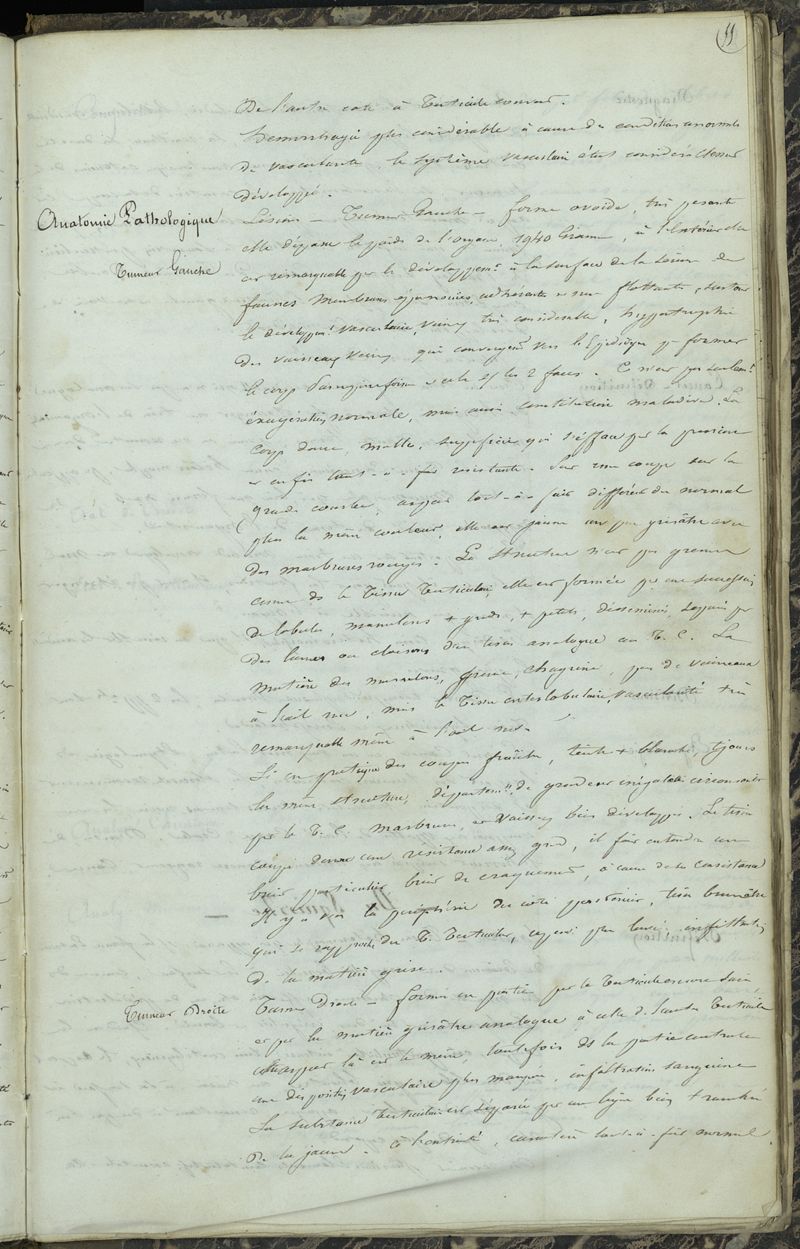 11
De l'autre coté à Testicule ouvert.
Hemorrhagie plus considérable à cause des conditions anormales
de vascularité, le système vasculaire étant considérablement
développé.
Anatomie Pathologique
Lésions — Tumeur Gauche — forme ovoïde, très pesante
Tumeur Gauche
elle dépasse le poids de l'organe, 1940 Gram, à l'extérieur elle
est remarquable par le développemt à la surface de la
fausses membranes, adhérentes flottantes, surtout
le développt vasculaire, veines très considérable, hypertrophie
des vaisseaux veineux qui convergent vers l'Epididyme pr former
le corps Pampiniforme, cela s/ les 2 faces. Ce n'est pas seulemt
exagération normale, mais aussi constitution maladive. Le
corps donne, molle, superficie, qui s'efface par la pression
et enfin tout-à-fait résistante. Sur une coupe sur la
grande courbe, aspect tout-à-fait différent du normal
plus la même couleur, elle est jaune un peu grisâtre avec
des marbrures rouges. La structure n'est pas grenue
comme ds le Tissu Testiculaire elle est formée par une succession
de lobules, mamelons + grds, + petits, disséminés, séparés par
des lames ou cloisons d'un tissu analogue au T. C. La
matière des mamelons, grenue, chagrinée, peu de vaisseaux
à l'œil nu, mais le Tissu interlobulaire, vascularité très
remarquable même à l'œil nu.
Si on pratique des coupes fraîches, teinte + blanche, tjours
la même structure, départemts de grandeur inégale circonscrits
par le T. C. marbrures, et vaisseaux bien développés. Le tissu
coupé donne une résistance assez grde, il fait entendre un
bruit particulier bruit de craquement, à cause de sa consistance
Il y a vers la périphérie du coté postérieur, tissu brunâtre
qui se rapproche du T. Testiculaire, un peu plus foncé, infiltration
de la matière grise.
Tumeur Droite
Tumeur Droite — formée en partie par le Testicule encore sain,
et par la matière grisâtre analogue à celle de l'autre Testicule
l'aspect là est le même, toutefois ds la partie centrale
une disposition vasculaire plus marquée, infiltration sanguine
La substance Testiculaire est séparée par une ligne bien tranchée
de la jaune. à l'extrémité, caractère tout-à-fait normal.